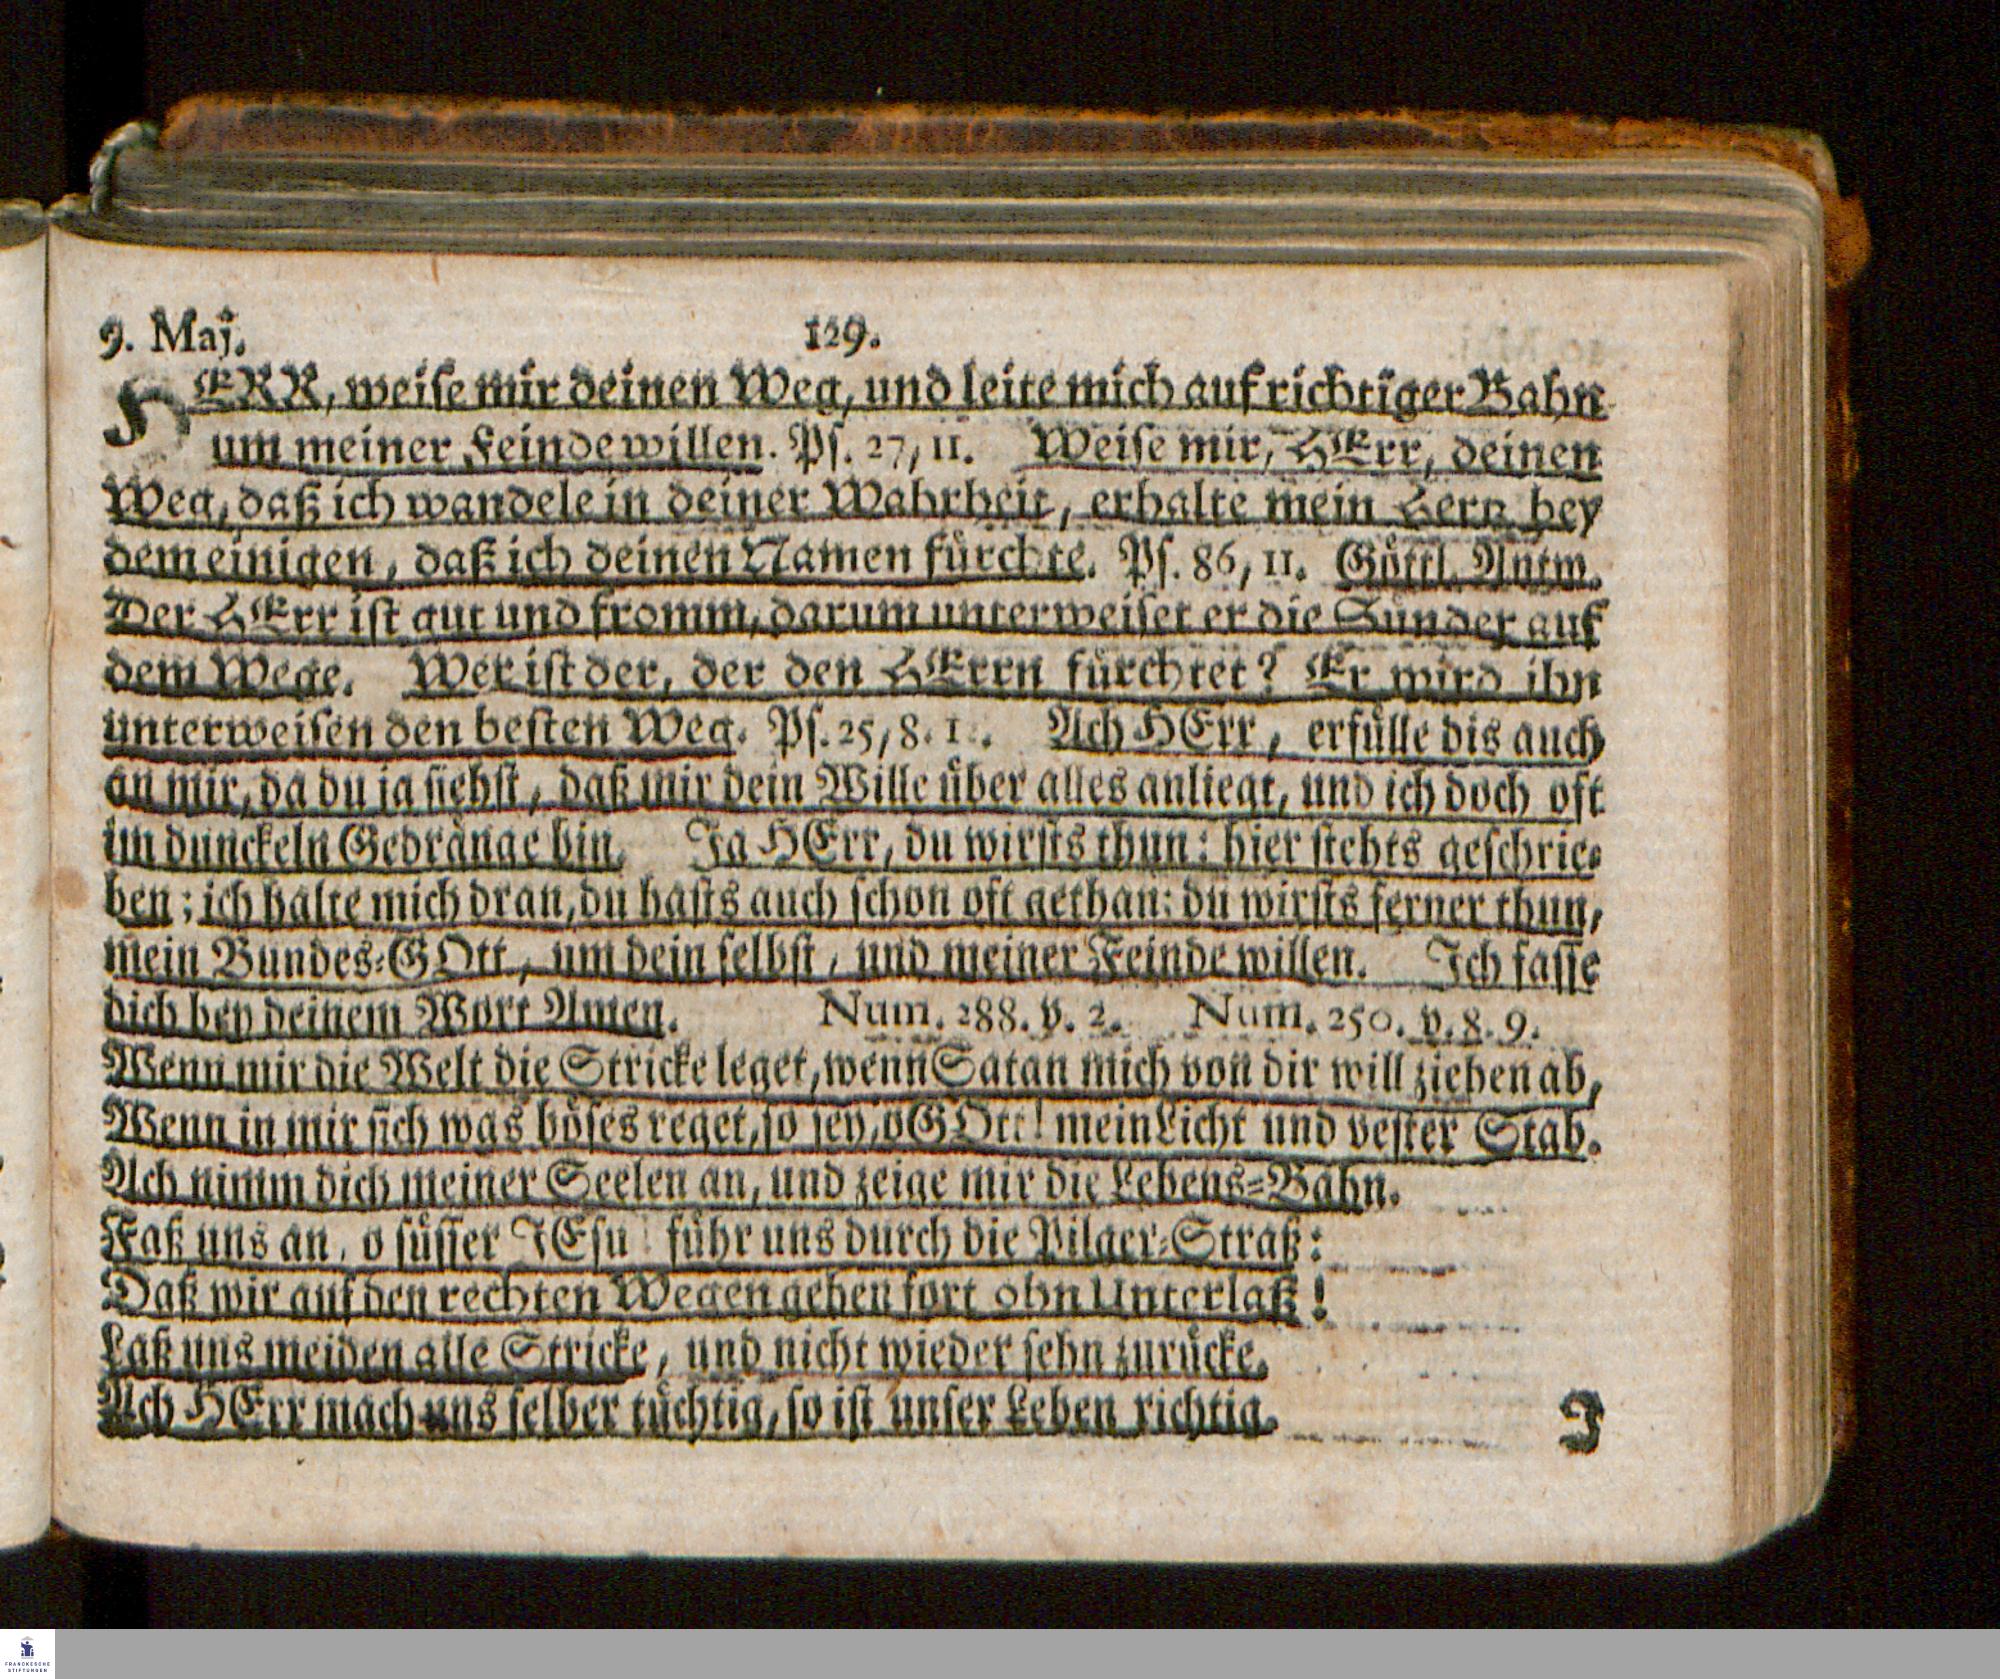 9. Maj. 129.
HERR, weise mir deinen Weg, und leite mich auf richtiger Bahn
um meiner Feinde willen. Ps. 27, 11. Weise mir, HErr, deinen
Weg, daß ich wandele in deiner Wahrheit, erhalte mein Hertz bey
dem einigen, daß ich deinen Namen fürchte. Ps. 86, 11. Göttl. Antw.
Der HErr ist gut und fromm, darum unterweiset er die Sünder auf
dem Wege. Wer ist der, der den HErrn fürchtet? Er wird ihn
unterweisen den besten Weg. Ps. 25, 8. Ach HErr, erfülle dis auch
an mir, da du ja siehst, daß mir dein Wille über alles anliegt, und ich doch oft
im dunckeln Gedränge bin. Ja HErr, du wirsts thun: hier stehts geschrie-
ben; ich halte mich dran, du hasts auch schon oft gethan: du wirsts ferner thun,
mein Bundes-GOtt, um dein selbst, und meiner Feinde willen. Ich fasse
dich bey deinem Wort Amen. Num. 288. v. 2. Num. 250. v. 8. 9.
Wenn mir die Welt die Stricke leget, wenn Satan mich von dir will ziehen ab,
Wenn in mir sich was böses reget, so sey, o GOtt! mein Licht und vester Stab.
Ach nimm dich meiner Seelen an, und zeige mir die Lebens-Bahn.
Faß uns an, o süsser JEsu! führ uns durch die Pilger-Straß:
Daß wir auf den rechten Wegen gehen fort ohn Unterlaß!
Laß uns meiden alle Stricke, und nicht wieder sehn zurücke.
Ach HErr mach uns selber tüchtig, so ist unser Leben richtig.
J
FRANCKESCHE
STIFTUNGEN